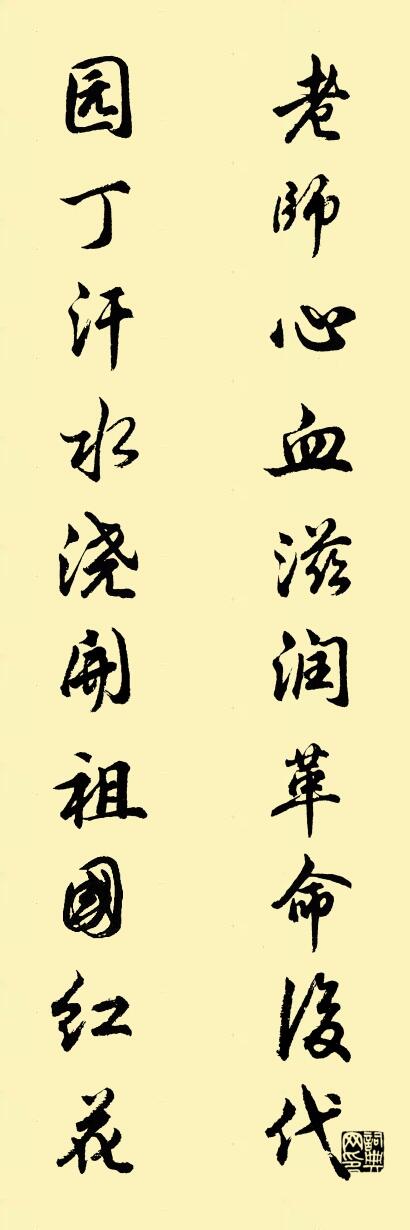 老師心血滋润革命後代
园丁汗水浇開祖國红花